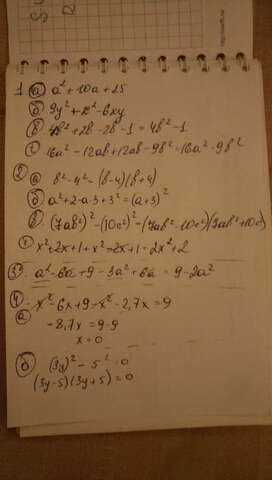 1. а) a² + 10a + 25
б) 9y² + x² - 6xy
в) 4b² + 2b - 2b - 1 = 4b² - 1
г) 16a² - 12ab + 12ab - 9b² = 16a² - 9b²
2. а) b² - 4² = (b-4)(b+4)
б) a² + 2·a·3 + 3² = (a+3)²
в) (7ab²)² - (10c²)² = (7ab² - 10c²)(7ab² + 10c²)
г) x² + 2x + 1 + x² - 2x + 1 = 2x² + 2
3. a² - 6a + 9 - 3a² + 6a = 9 - 2a²
4. x² - 6x + 9 - x² - 2,7x = 9
а) -8,7x = 9-9
x = 0
б) (3y)² - 5² = 0
(3y-5)(3y+5) = 0